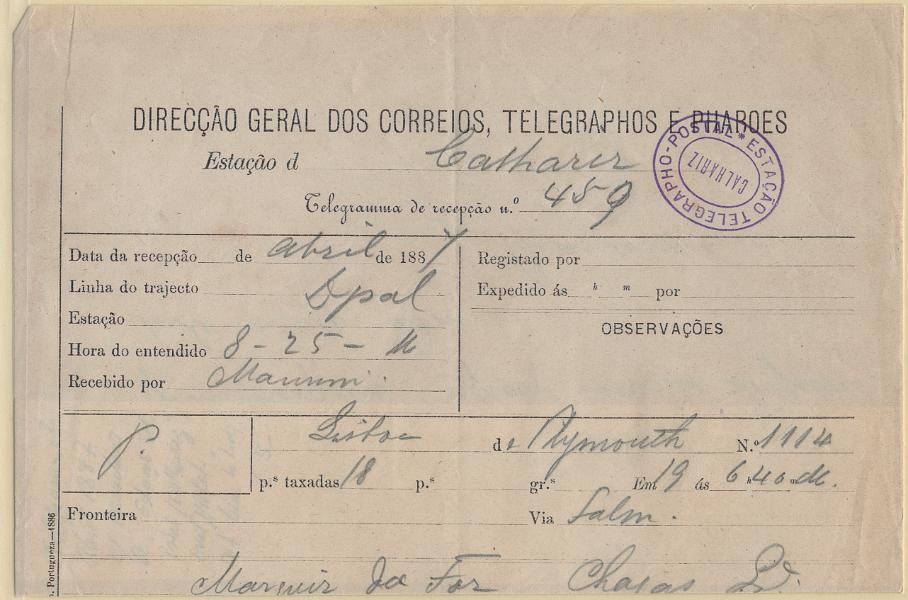 DIRECÇÃO GERAL DOS CORREIOS, TELEGRAPHOS E PHAROES
Estação d Calhariz
ESTAÇÃO TELEGRAPHO-POSTAL *
CALHARIZ
Telegramma de recepção n.º 459
Data da recepção de abril de 1887
Linha do trajecto Dpal
Estação
Hora do entendido 8-25-M
Recebido por
Registado por
Expedido ás h m por
OBSERVAÇÕES
P. Lisboa de Plymouth N.º 1114
p.ˢ taxadas 18 p.ˢ gr.ˢ Em 19 ás 6 h 40 m M.
Fronteira Via Falm.
Marquis da Foz Chagas
Portugueza—1886